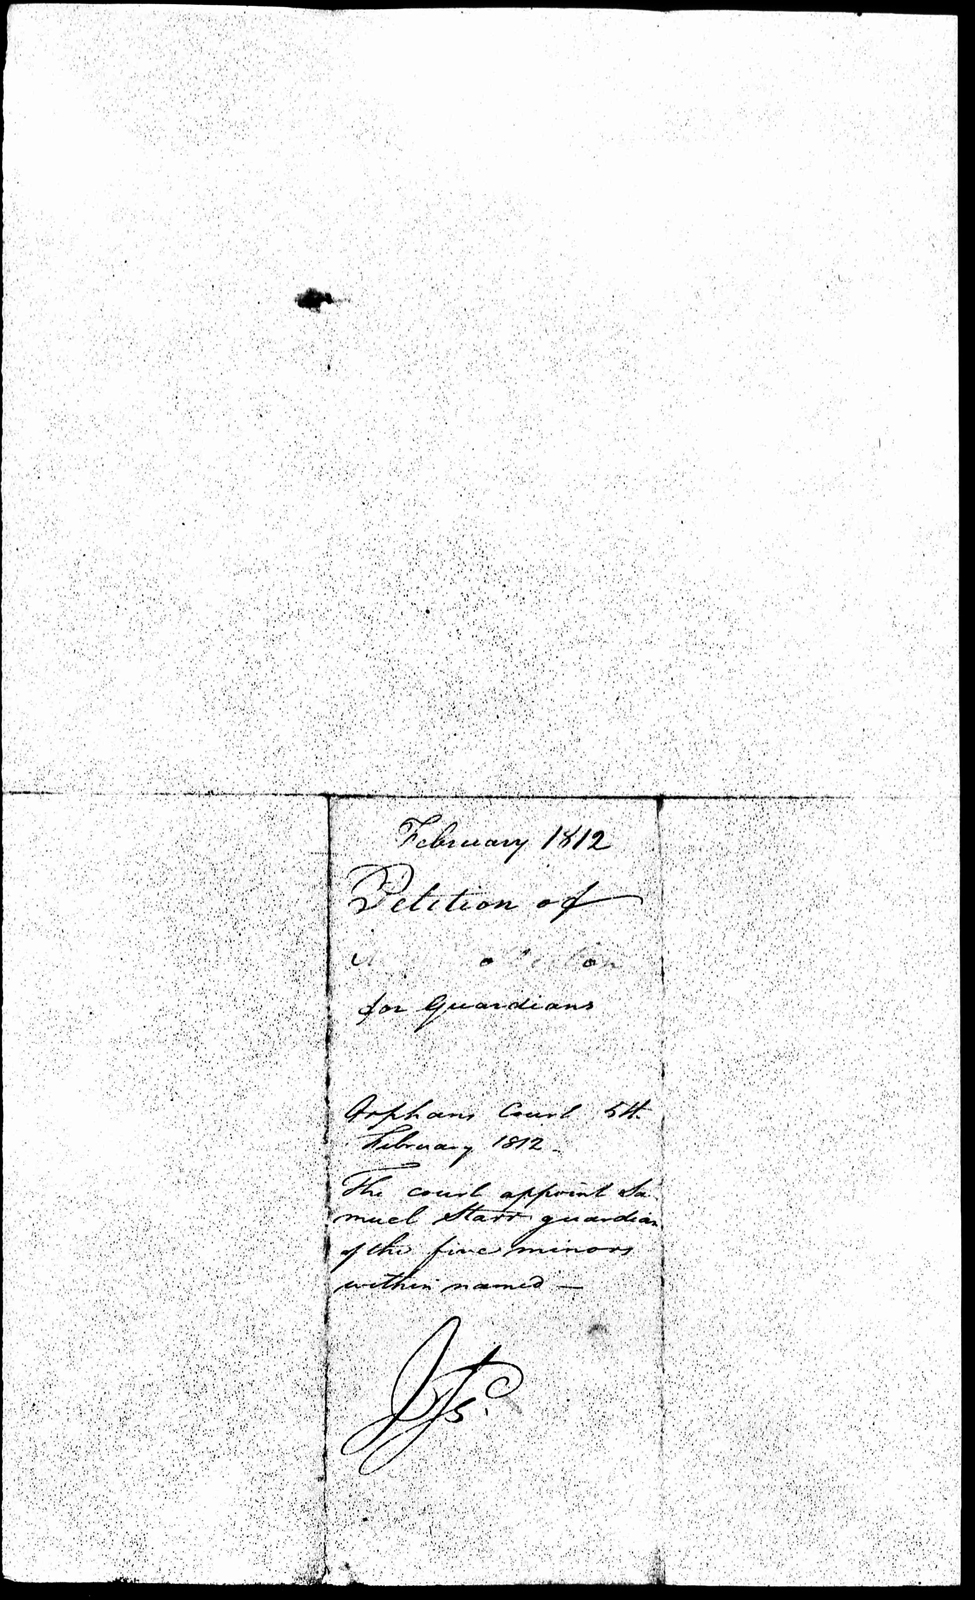 February 1812
Petition of
for Guardians
Orphans Court 5th
February 1812
The court appoint Sa
muel Starr guardian
of the five minors
within named —